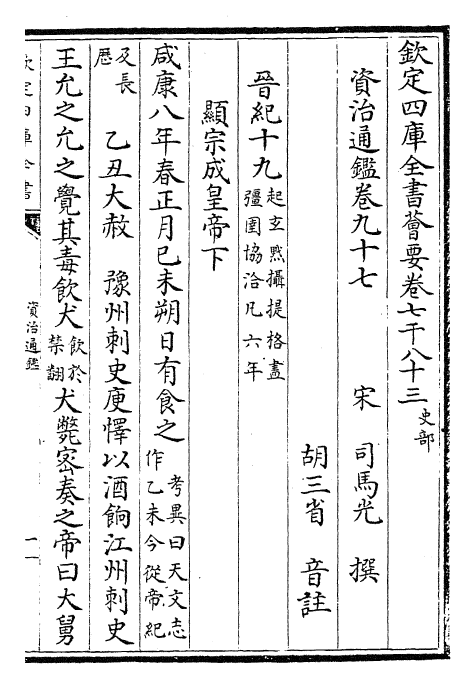 欽定四庫全書薈要卷七千八十三史部
資治通鑑卷九十七 宋 司馬光 撰
胡三省 音註
晉紀十九起玄黓攝提格盡彊圉協洽凡六年
顯宗成皇帝下
咸康八年春正月己未朔日有食之考異曰天文志作乙未今從帝紀
及長歷 乙丑大赦 豫州刺史庾懌以酒餉江州刺史
王允之允之覺其毒飲犬飲於禁翻犬斃密奏之帝曰大舅
欽定四庫全書
資治通鑑
一